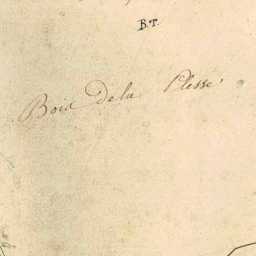 B.T.
Bois dela Plesse